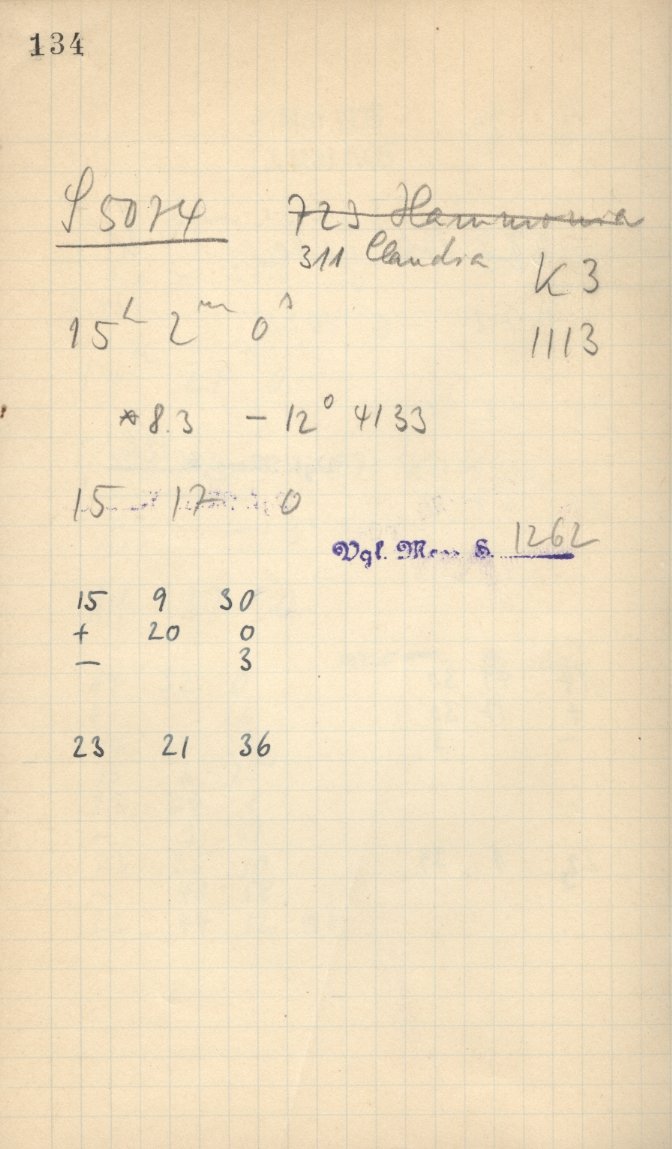 134
S 5074 723 Hammonia
311 Claudia
K 3
15h 2m 0s
1113
*8.3 – 12° 4133
15 17 0
Vgl. Mess. S. 1262
15 9 30
+ 20 0
– 3
23 21 36